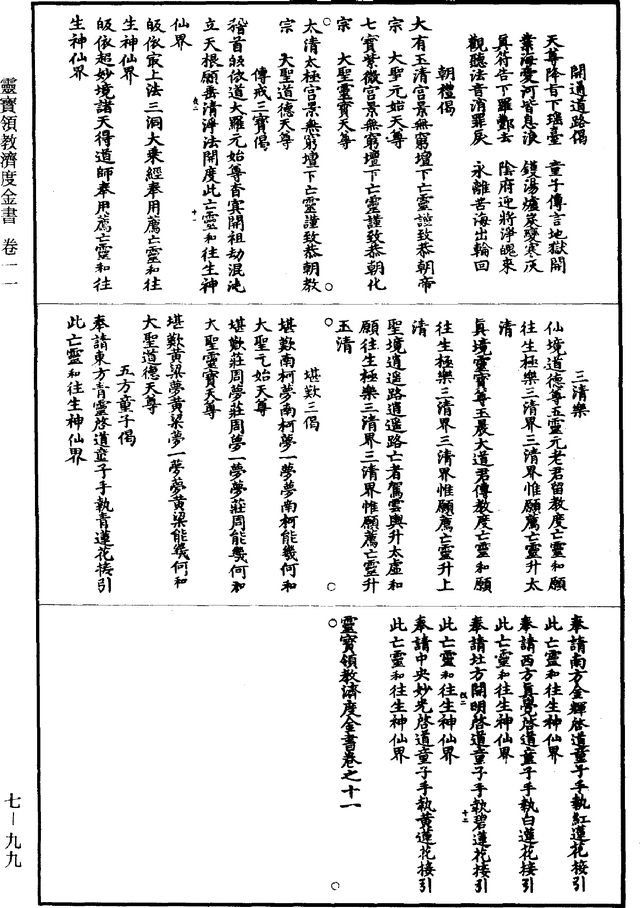 開通道路偈
天尊降旨下瑤臺　童子傳言地獄開
業海愛河皆息浪　鑊湯爐炭變寒灰
真符告下羅酆去　陰府迎將淨魄來
觀聽法音消罪戾　永離苦海出輪回
朝禮偈
大有玉清宮景無窮壇下亡靈謹致恭朝帝
宗　大聖元始天尊
七寶紫微宮景無窮壇下亡靈謹致恭朝化
宗　大聖靈寶天尊
太清太極宮景無窮壇下亡靈謹致恭朝教
宗　大聖道德天尊
傳戒三寶偈
稽首皈依道大羅元始尊杳冥開祖劫混沌
立天根願垂清淨法開度此亡靈和往生神
仙界
皈依最上法三洞大乘經奉用薦亡靈和往
生神仙界
皈依超妙境諸天得道師奉用薦亡靈和往
生神仙界
三清樂
仙境道德尊五靈元老君留教度亡靈和願
往生極樂三清界三清界惟願薦亡靈升太
清
真境靈寶尊玉晨大道君傳教度亡靈和願
往生極樂三清界三清界惟願薦亡靈升上
清
聖境逍遙路逍遙路亡者駕雲輿升太虛和
願往生極樂三清界三清界惟願薦亡靈升
玉清
堪歎三偈
堪歎南柯夢南柯夢一夢夢南柯能幾何和
大聖元始天尊
堪歎莊周夢莊周夢一夢夢莊周能幾何和
大聖靈寶天尊
堪歎黃粱夢黃粱夢一夢夢黃粱能幾何和
大聖道德天尊
五方童子偈
奉請東方青靈啓道童子手執青蓮花接引
此亡靈和往生神仙界
奉請南方金輝啓道童子手執紅蓮花接引
此亡靈和往生神仙界
奉請西方真覺啓道童子手執白蓮花接引
此亡靈和往生神仙界
奉請北方開明啓道童子手執碧蓮花接引
此亡靈和往生神仙界
奉請中央妙光啓道童子手執黃蓮花接引
此亡靈和往生神仙界
靈寶領教濟度金書卷之十一
靈寶領教濟度金書　卷一一
七－九九
十一
十二